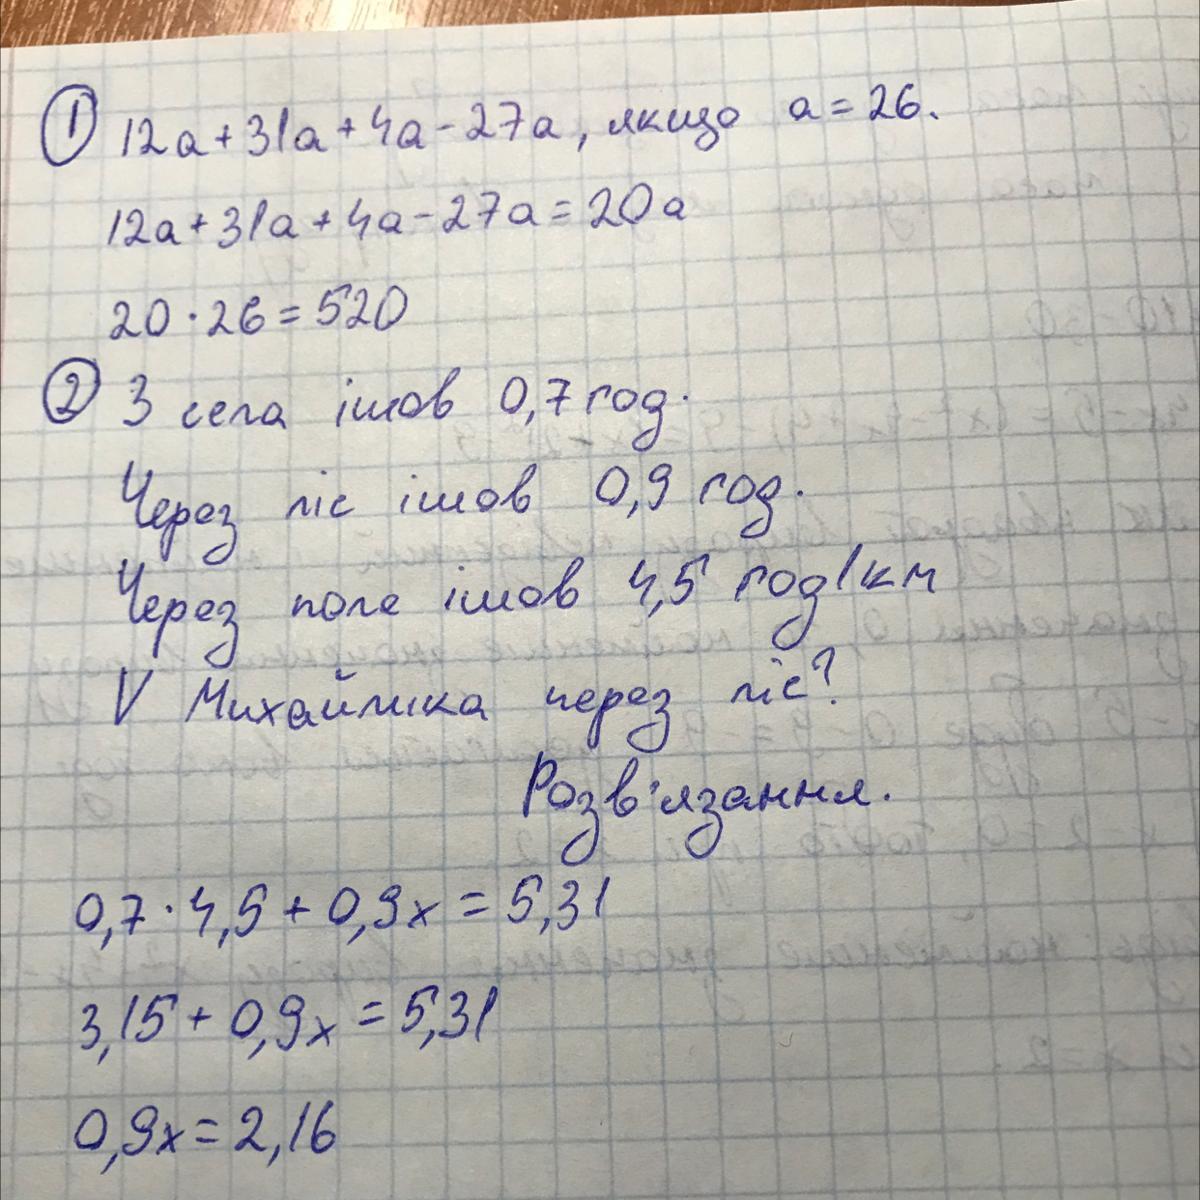 ① 12a+31a+4a-27a, якщо a=26.
12a+31a+4a-27a=20a
20·26=520
② З села ішов 0,7 год.
Через ліс ішов 0,9 год.
Через поле ішов 4,5 год/км
V Михайлика через ліс?
Розв'язання.
0,7·4,5+0,9x=5,31
3,15+0,9x=5,31
0,9x=2,16